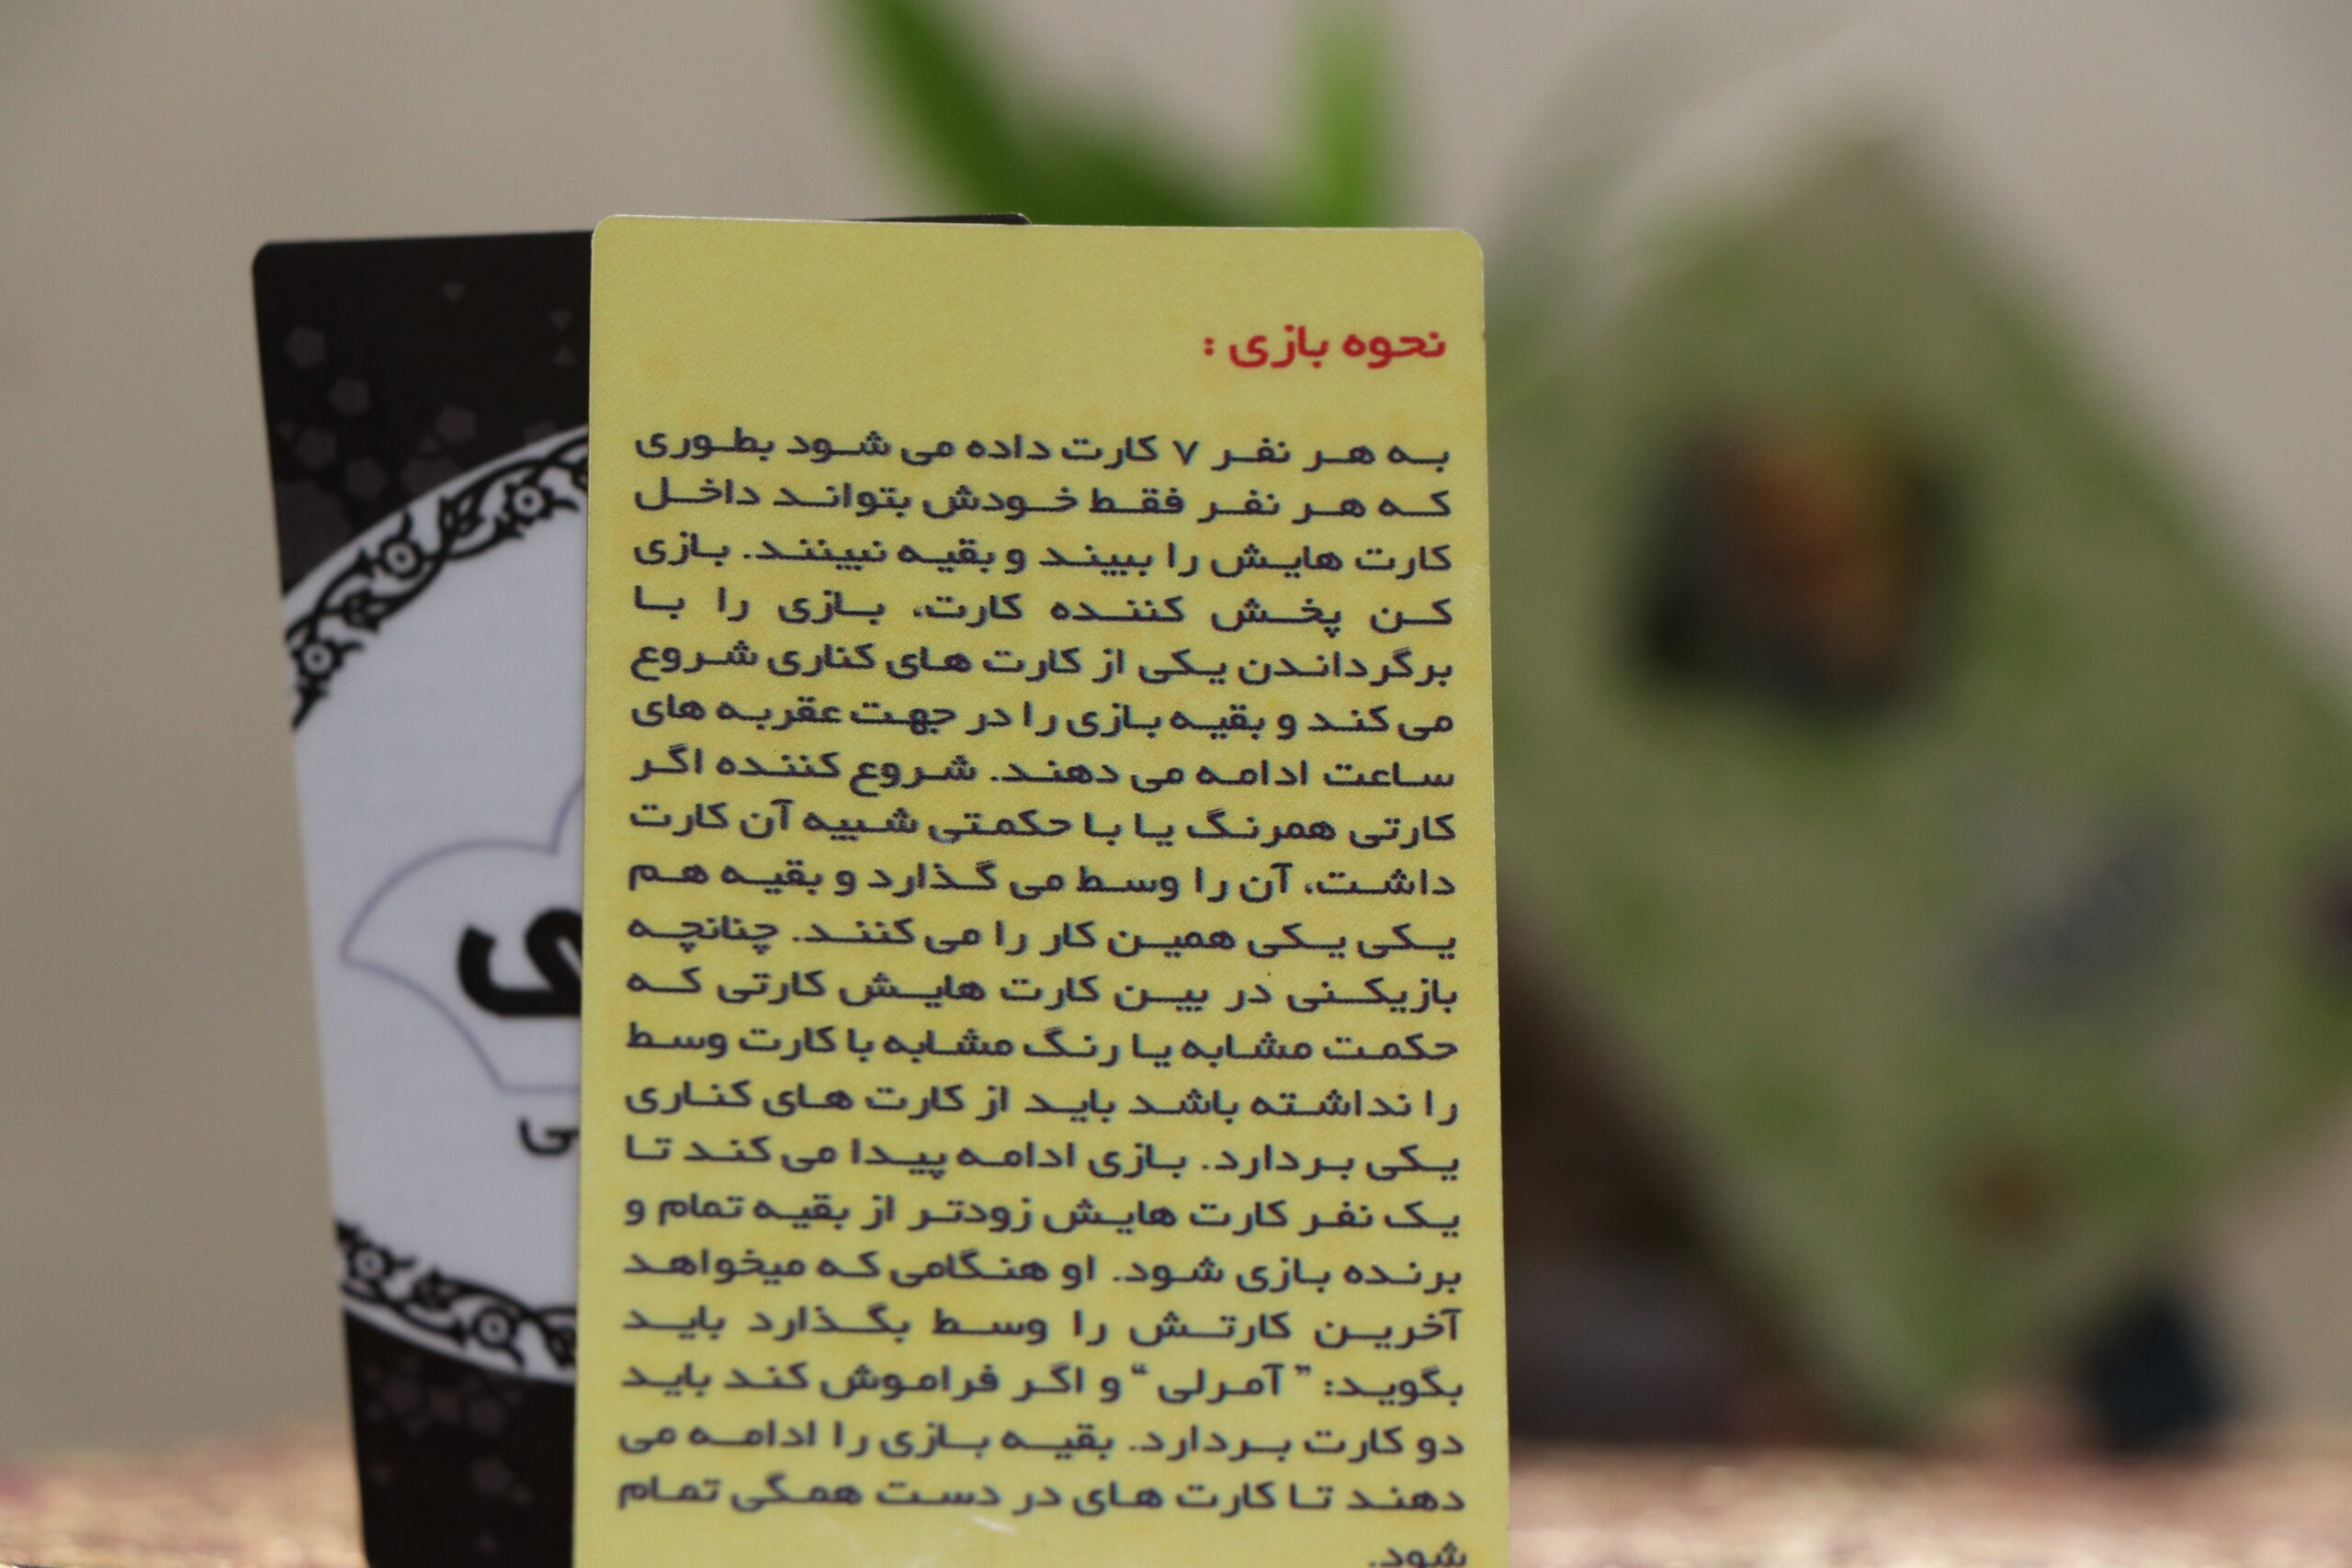 نحوه بازی :
به هر نفر ۷ کارت داده می شود بطوری
که هر نفر فقط خودش بتواند داخل
کارت هایش را ببیند و بقیه نبینند. بازی
کن پخش کننده کارت، بازی را با
برگرداندن یکی از کارت های کناری شروع
می کند و بقیه بازی را در جهت عقربه های
ساعت ادامه می دهند. شروع کننده اگر
کارتی همرنگ یا با حکمتی شبیه آن کارت
داشت، آن را وسط می گذارد و بقیه هم
یکی یکی همین کار را می کنند. چنانچه
بازیکنی در بین کارت هایش کارتی که
حکمت مشابه یا رنگ مشابه با کارت وسط
را نداشته باشد باید از کارت های کناری
یکی بردارد. بازی ادامه پیدا می کند تا
یک نفر کارت هایش زودتر از بقیه تمام و
برنده بازی شود. او هنگامی که میخواهد
آخرین کارتش را وسط بگذارد باید
بگوید: " آمرلی " و اگر فراموش کند باید
دو کارت بردارد. بقیه بازی را ادامه می
دهند تا کارت های در دست همگی تمام
شود.